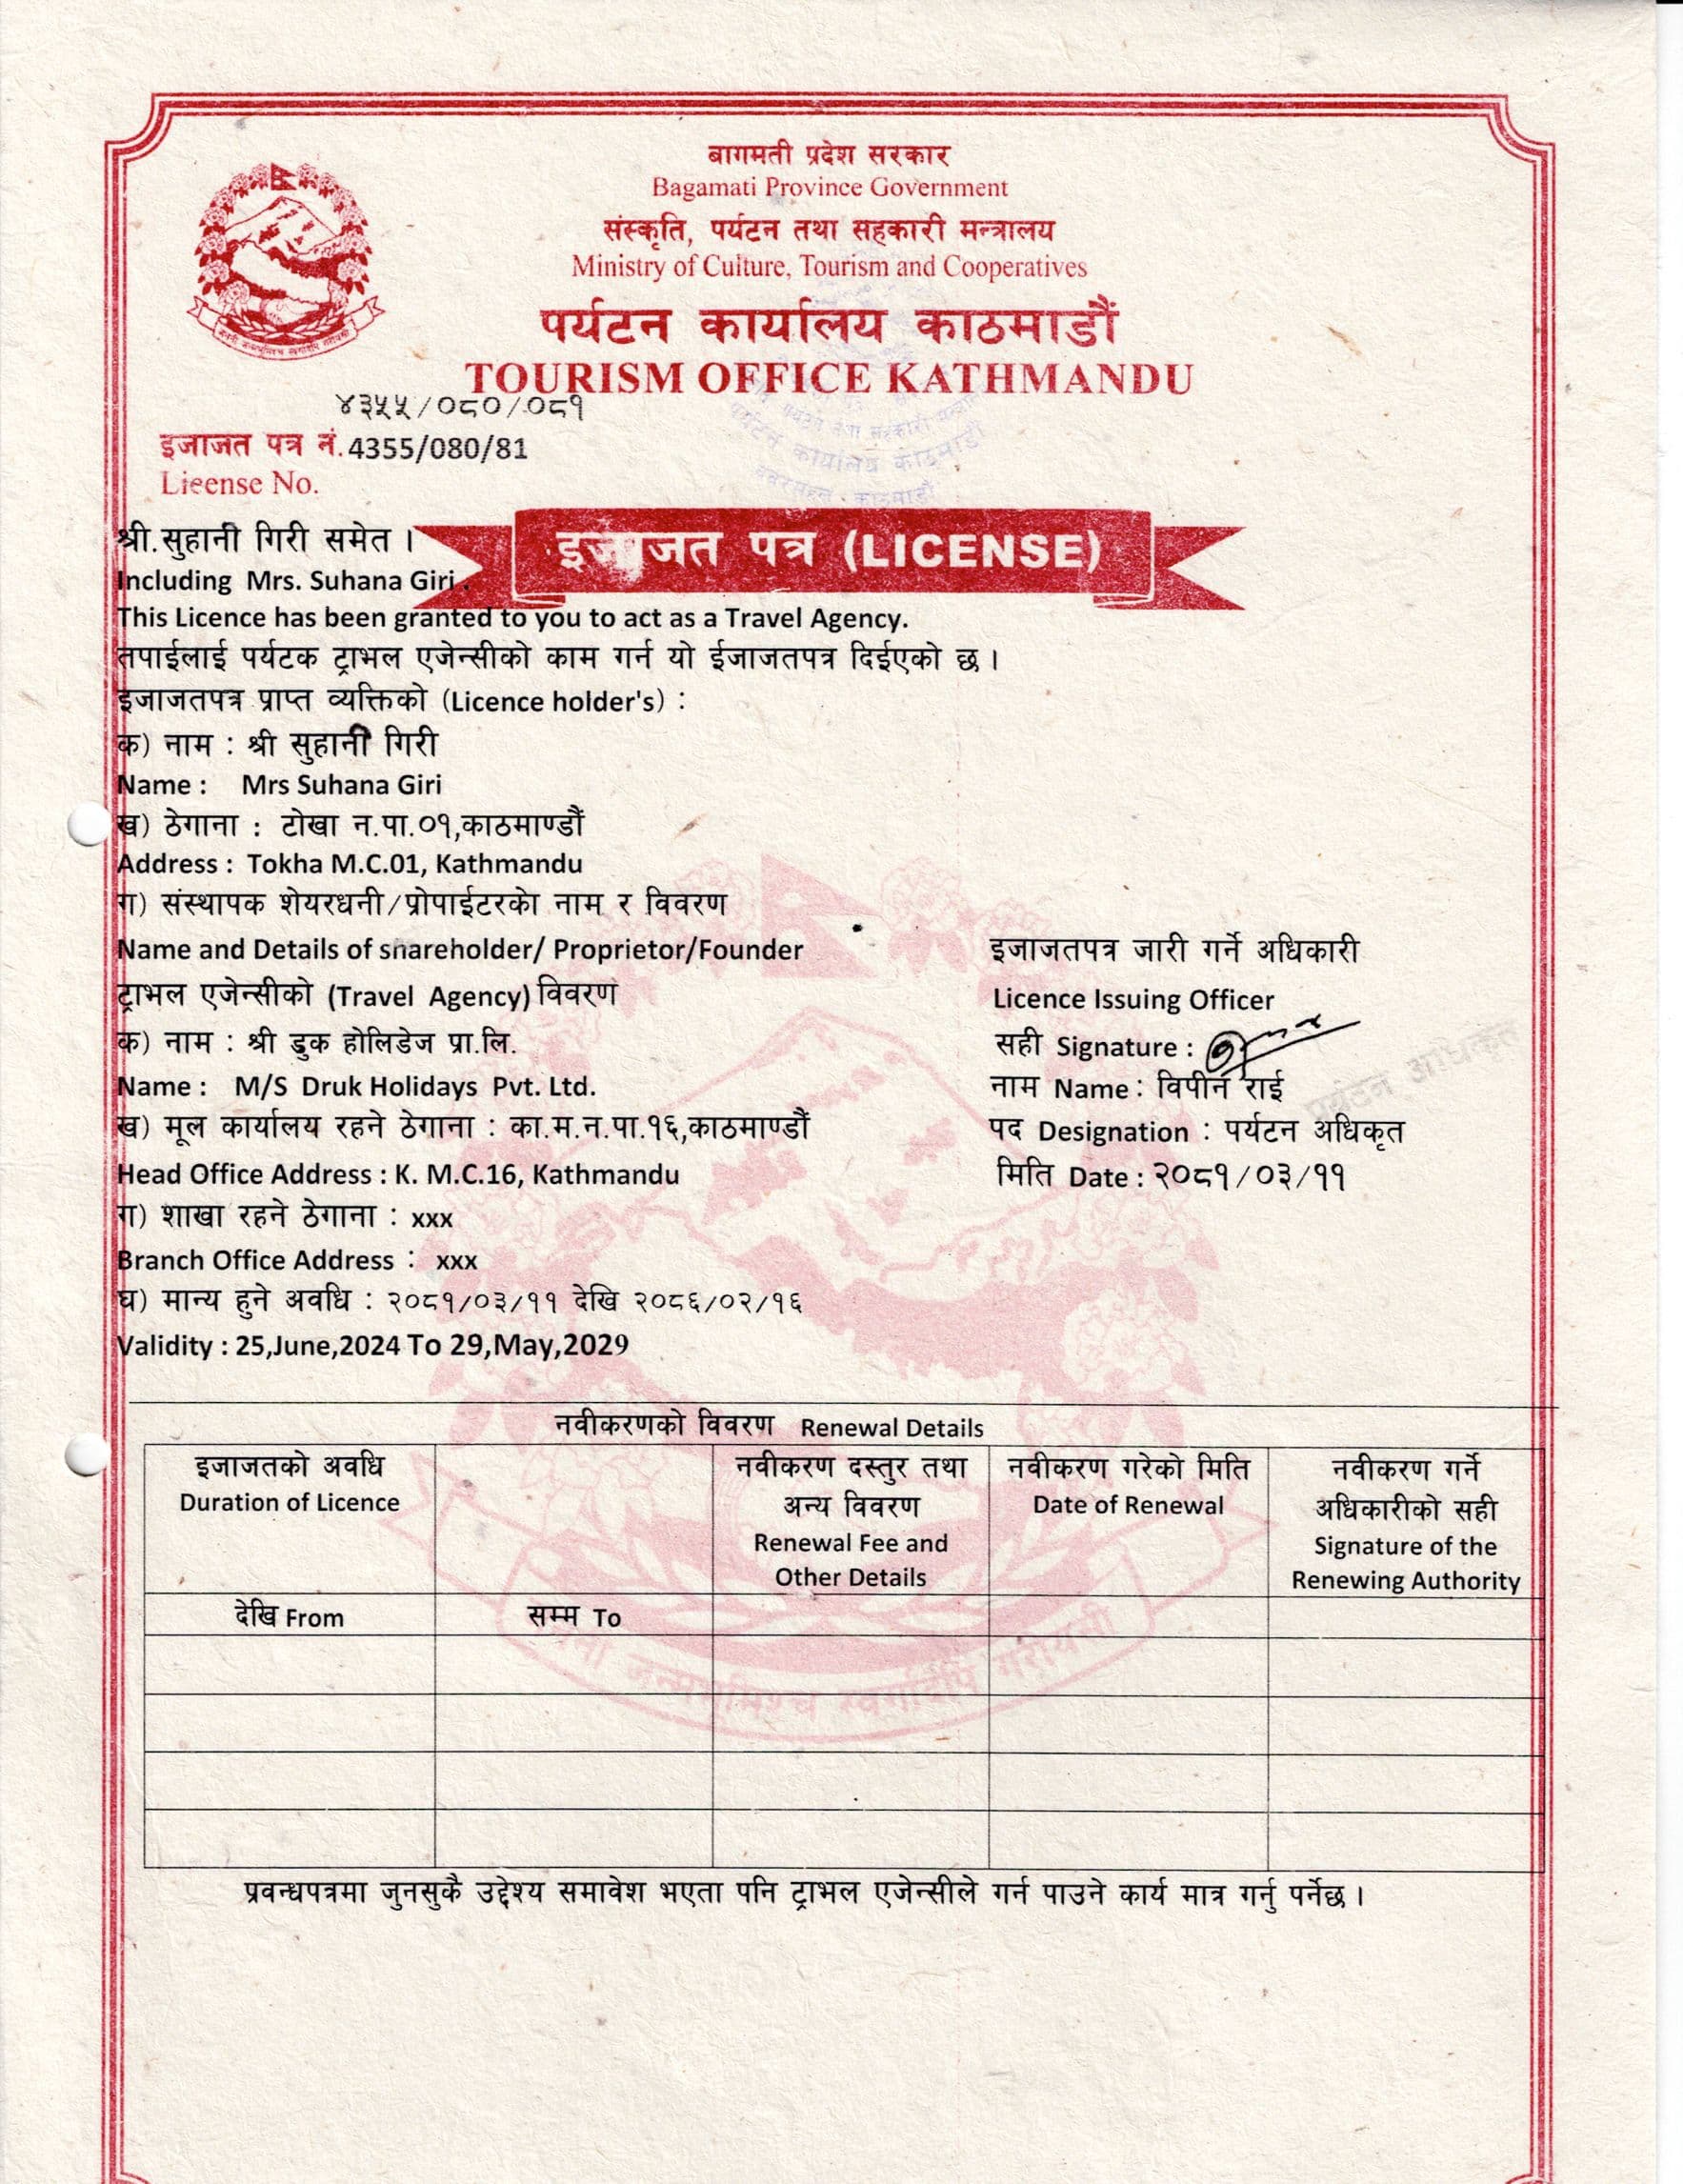 बागमती प्रदेश सरकार
Bagamati Province Government
संस्कृति, पर्यटन तथा सहकारी मन्त्रालय
Ministry of Culture, Tourism and Cooperatives
पर्यटन कार्यालय काठमाडौं
TOURISM OFFICE KATHMANDU
४३५५/०८०/०८१
इजाजत पत्र नं. 4355/080/81
License No.
पर्यटन कार्यालय काठमाडौं
बबरमहल, काठमाडौं
इजाजत पत्र (LICENSE)
श्री.सुहानी गिरी समेत ।
Including Mrs. Suhana Giri.
This Licence has been granted to you to act as a Travel Agency.
तपाईलाई पर्यटक ट्राभल एजेन्सीको काम गर्न यो ईजाजतपत्र दिईएको छ ।
इजाजतपत्र प्राप्त व्यक्तिको (Licence holder's) :
क) नाम : श्री सुहानी गिरी
Name : Mrs Suhana Giri
ख) ठेगाना : टोखा न.पा.०१,काठमाण्डौं
Address : Tokha M.C.01, Kathmandu
ग) संस्थापक शेयरधनी/प्रोपाईटरको नाम र विवरण
Name and Details of shareholder/ Proprietor/Founder
ट्राभल एजेन्सीको (Travel Agency) विवरण
क) नाम : श्री डुक होलिडेज प्रा.लि.
Name : M/S Druk Holidays Pvt. Ltd.
ख) मूल कार्यालय रहने ठेगाना : का.म.न.पा.१६,काठमाण्डौं
Head Office Address : K. M.C.16, Kathmandu
ग) शाखा रहने ठेगाना : xxx
Branch Office Address : xxx
घ) मान्य हुने अवधि : २०८१/०३/११ देखि २०८६/०२/१६
Validity : 25,June,2024 To 29,May,2029
इजाजतपत्र जारी गर्ने अधिकारी
Licence Issuing Officer
सही Signature :
नाम Name : विपीन राई
पद Designation : पर्यटन अधिकृत
मिति Date : २०८१/०३/११
पर्यटन अधिकृत
नवीकरणको विवरण Renewal Details
इजाजतको अवधि
Duration of Licence
नवीकरण दस्तुर तथा
अन्य विवरण
Renewal Fee and
Other Details
नवीकरण गरेको मिति
Date of Renewal
नवीकरण गर्ने
अधिकारीको सही
Signature of the
Renewing Authority
देखि From
सम्म To
जननी जन्मभूमिश्च स्वर्गादपि गरीयसी
प्रवन्धपत्रमा जुनसुकै उद्देश्य समावेश भएता पनि ट्राभल एजेन्सीले गर्न पाउने कार्य मात्र गर्नु पर्नेछ ।